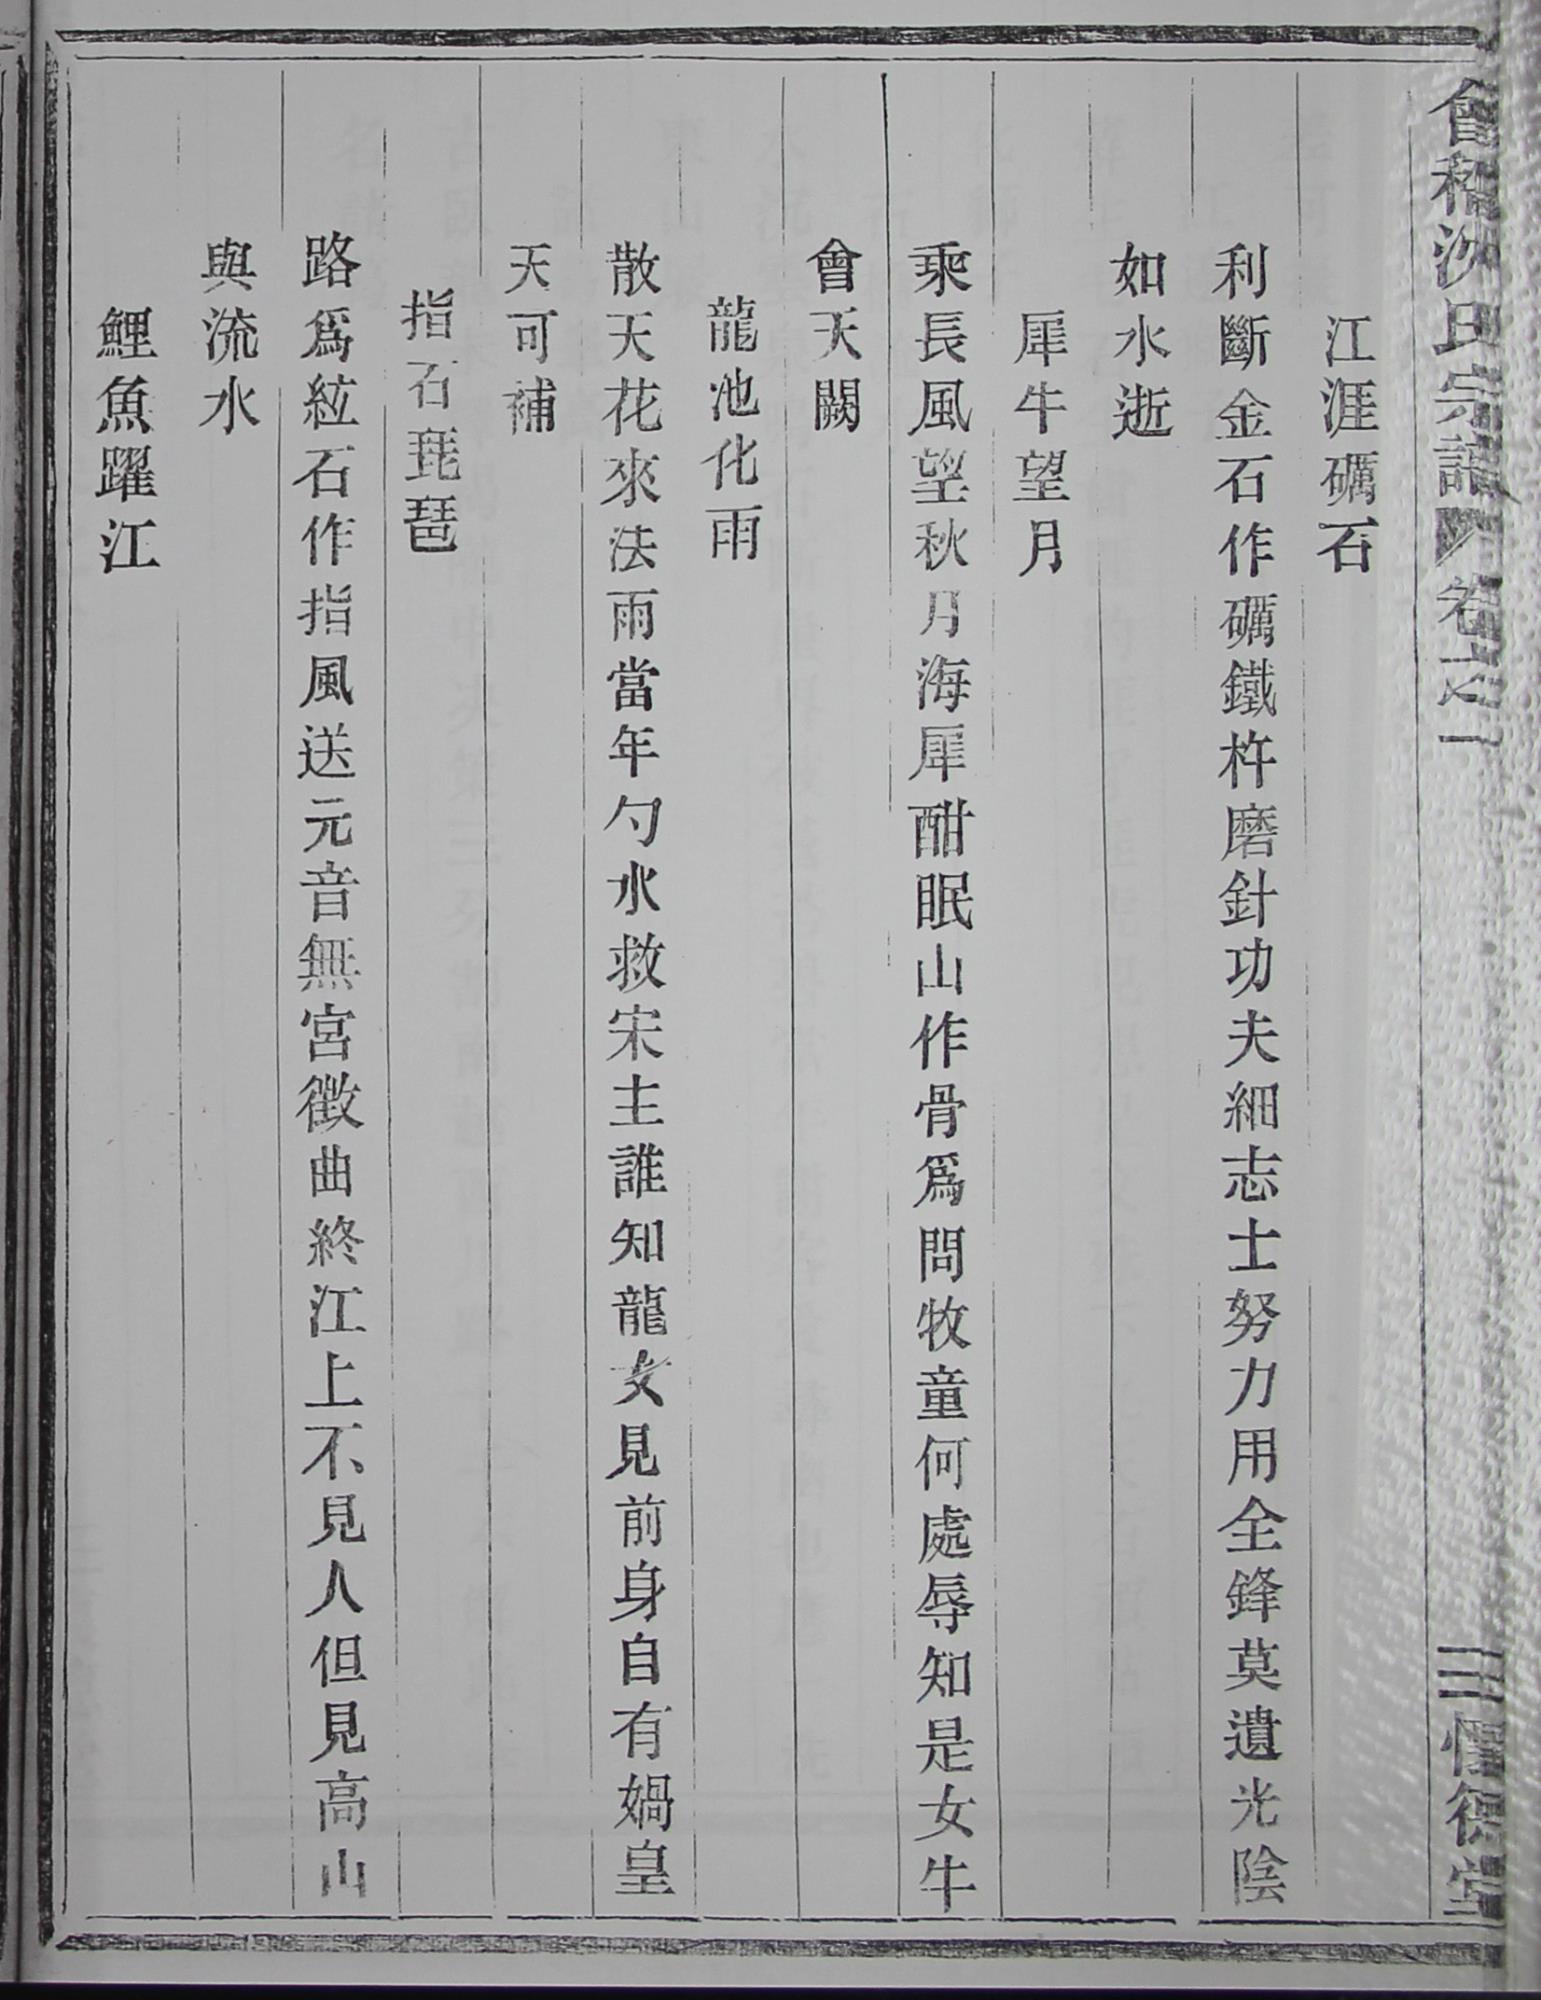 會稽沈氏宗譜 卷之一 三 德堂
江涯礪石
利斷金石作礪鐵杵磨針功夫細志士努力用全鋒莫遺光陰
如水逝
犀牛望月
乘長風望秋月海犀酣眠山作骨爲問牧童何處辱知是女牛
會天闕
龍池化雨
散天花來法雨當年勺水救宋主誰知龍女見前身自有媧皇
天可補
指石琵琶
路爲絃石作指風送元音無宮徵曲終江上不見人但見高山
與流水
鯉魚躍江